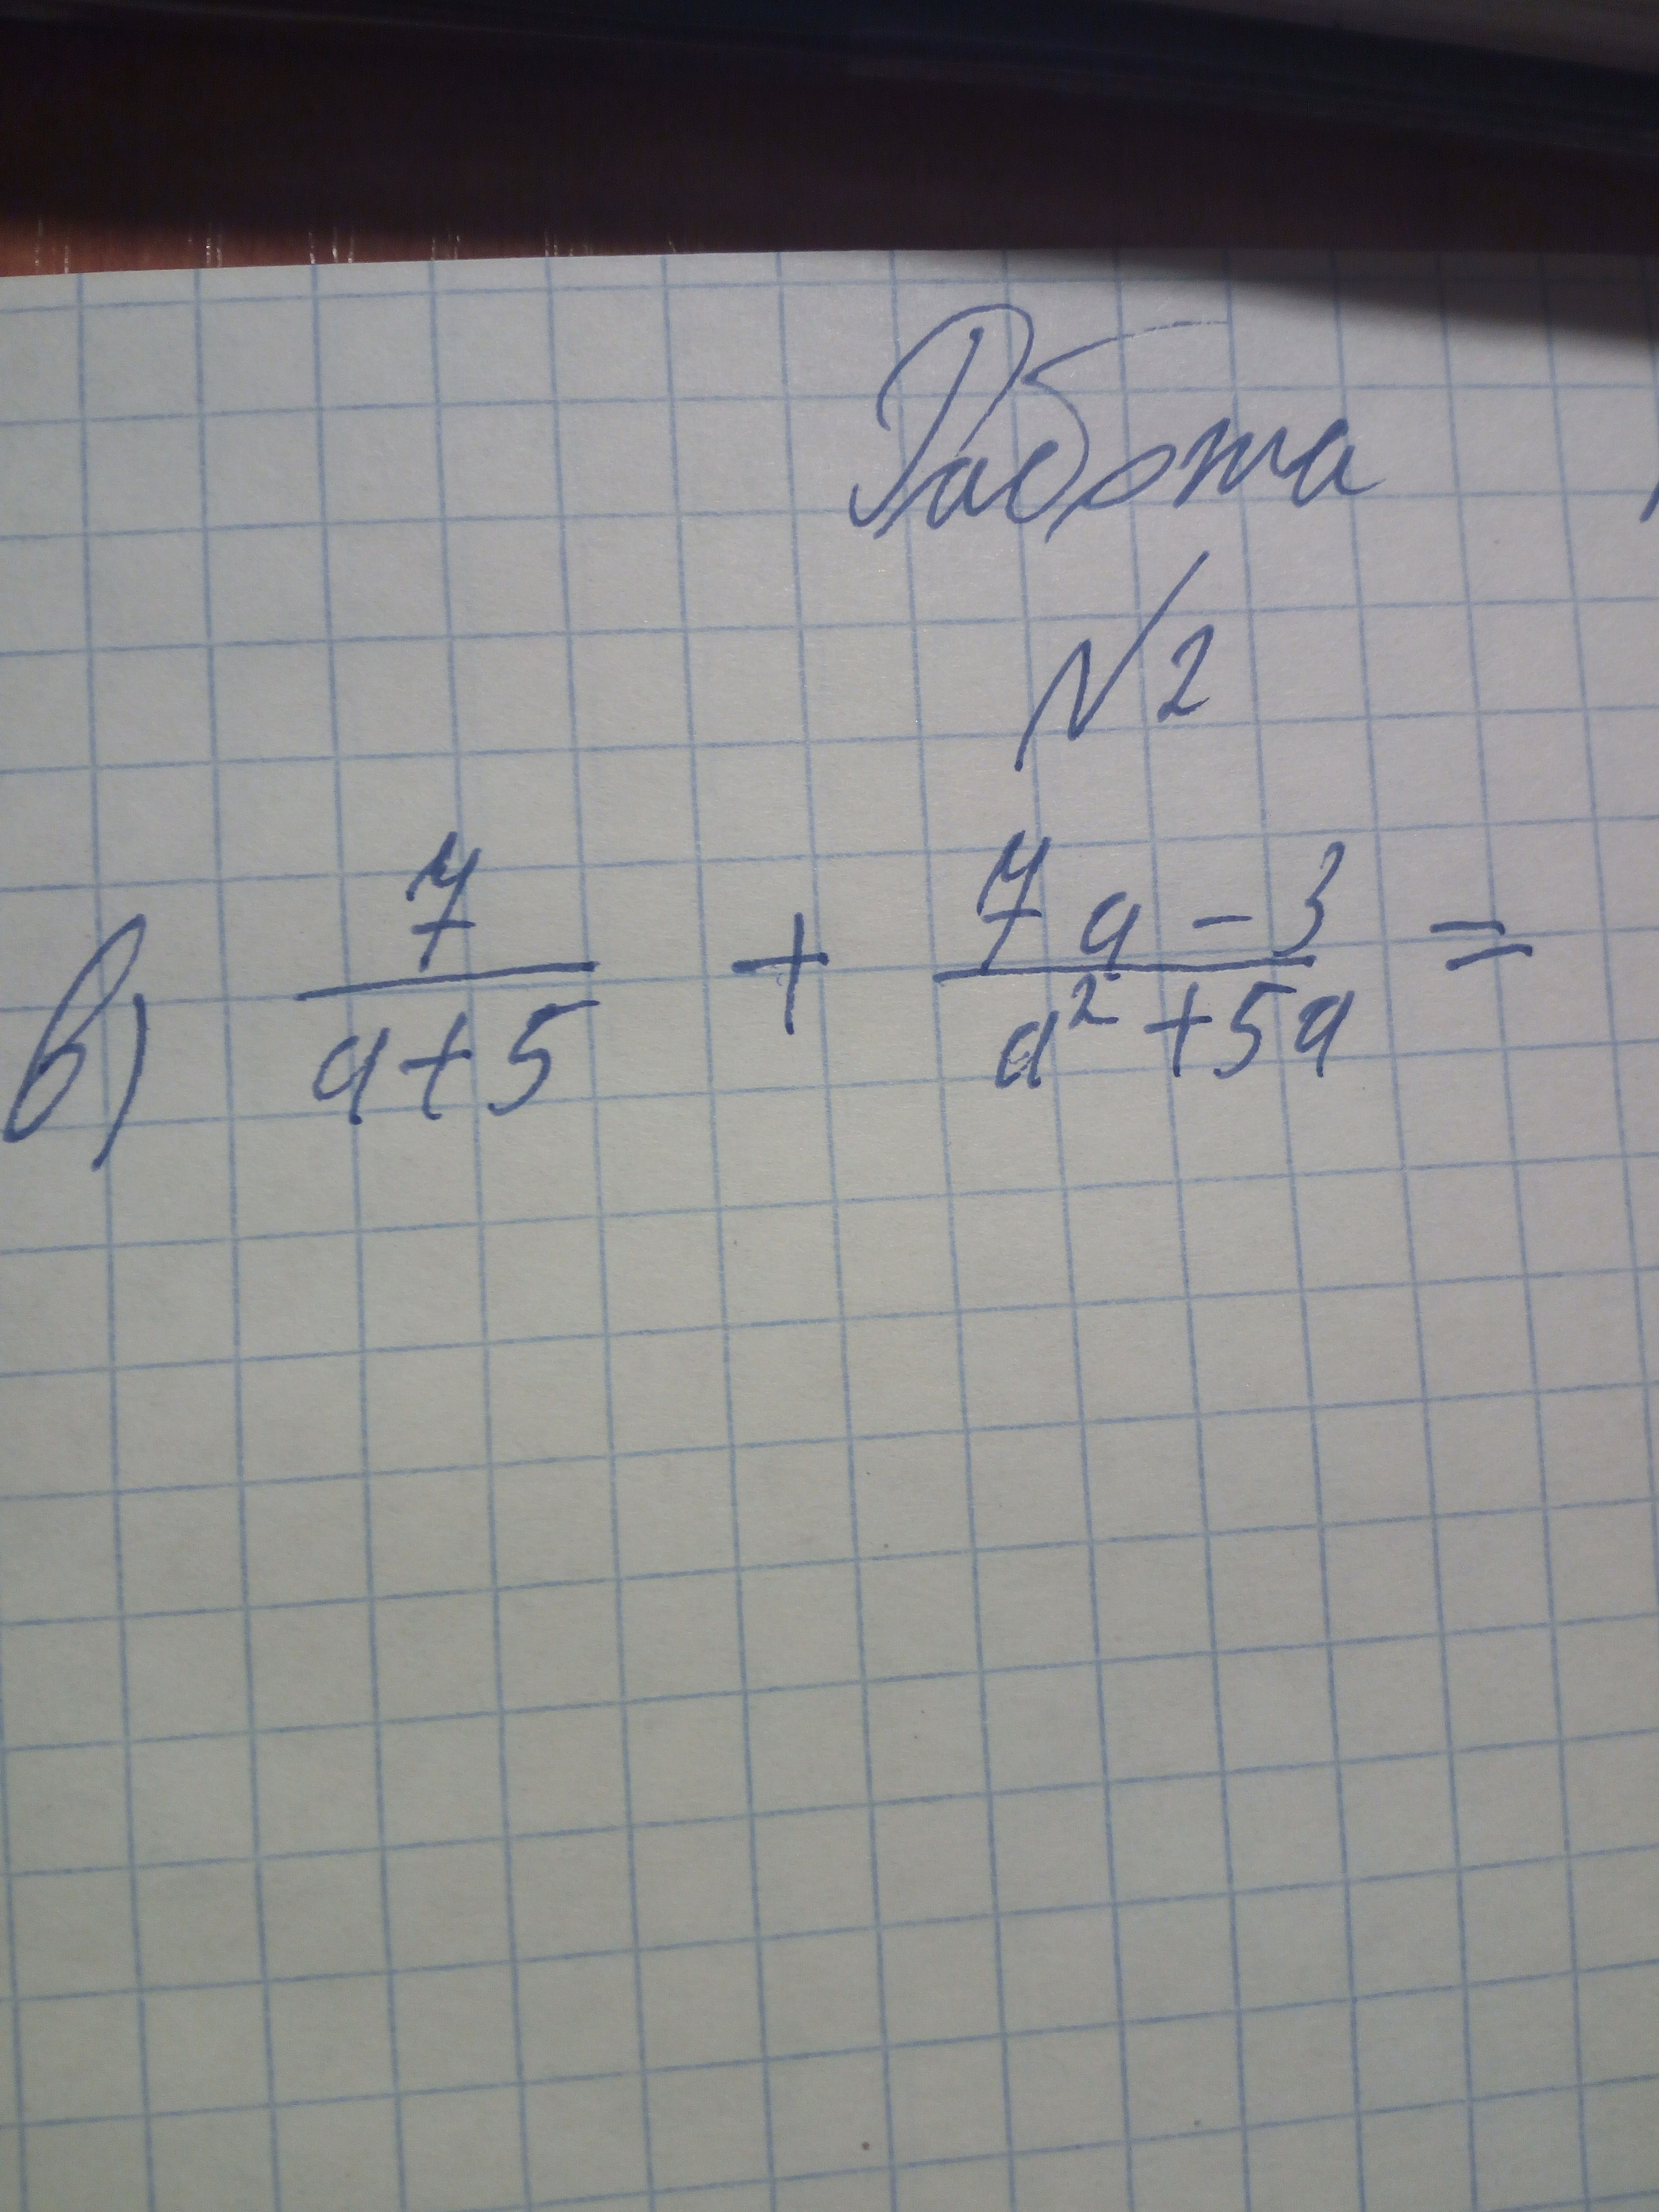 Работа
№2
в) 7/(a+5) + (7a-3)/(a²+5a) =